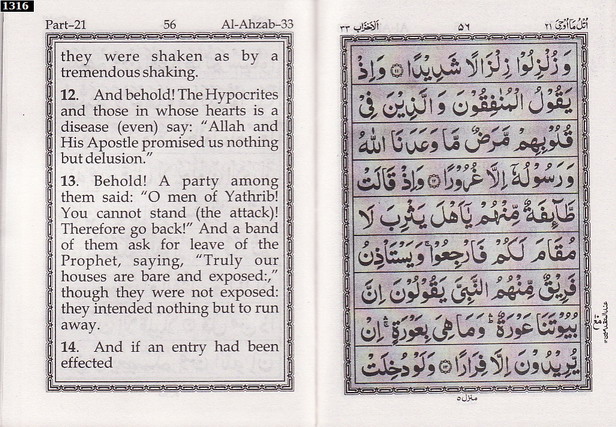 1316
Part-21 56 Al-Ahzab-33
they were shaken as by a
tremendous shaking.
12. And behold! The Hypocrites
and those in whose hearts is a
disease (even) say: “Allah and
His Apostle promised us nothing
but delusion.”
13. Behold! A party among
them said: “O men of Yathrib!
You cannot stand (the attack)!
Therefore go back!” And a band
of them ask for leave of the
Prophet, saying, “Truly our
houses are bare and exposed:,”
though they were not exposed:
they intended nothing but to run
away.
14. And if an entry had been
effected
اُتْلُ مَآ اُوْحِیَ ٢١ ٥٦ اَلْاَحْزَاب ٣٣
وَ زُلْزِلُوْا زِلْزَالًا شَدِیْدًا ۝١١ وَ اِذْ
یَقُوْلُ الْمُنٰفِقُوْنَ وَ الَّذِیْنَ فِیْ
قُلُوْبِهِمْ مَّرَضٌ مَّا وَعَدَنَا اللّٰهُ
وَ رَسُوْلُهٗۤ اِلَّا غُرُوْرًا ۝١٢ وَ اِذْ قَالَتْ
طَّآىِٕفَةٌ مِّنْهُمْ یٰۤاَهْلَ یَثْرِبَ لَا
مُقَامَ لَكُمْ فَارْجِعُوْا ۚ وَ یَسْتَاْذِنُ
فَرِیْقٌ مِّنْهُمُ النَّبِیَّ یَقُوْلُوْنَ اِنَّ
بُیُوْتَنَا عَوْرَةٌ ۛؕ وَ مَا هِیَ بِعَوْرَةٍ ۛۚ اِنْ
یُّرِیْدُوْنَ اِلَّا فِرَارًا ۝١٣ وَ لَوْ دُخِلَتْ
منزل ٥